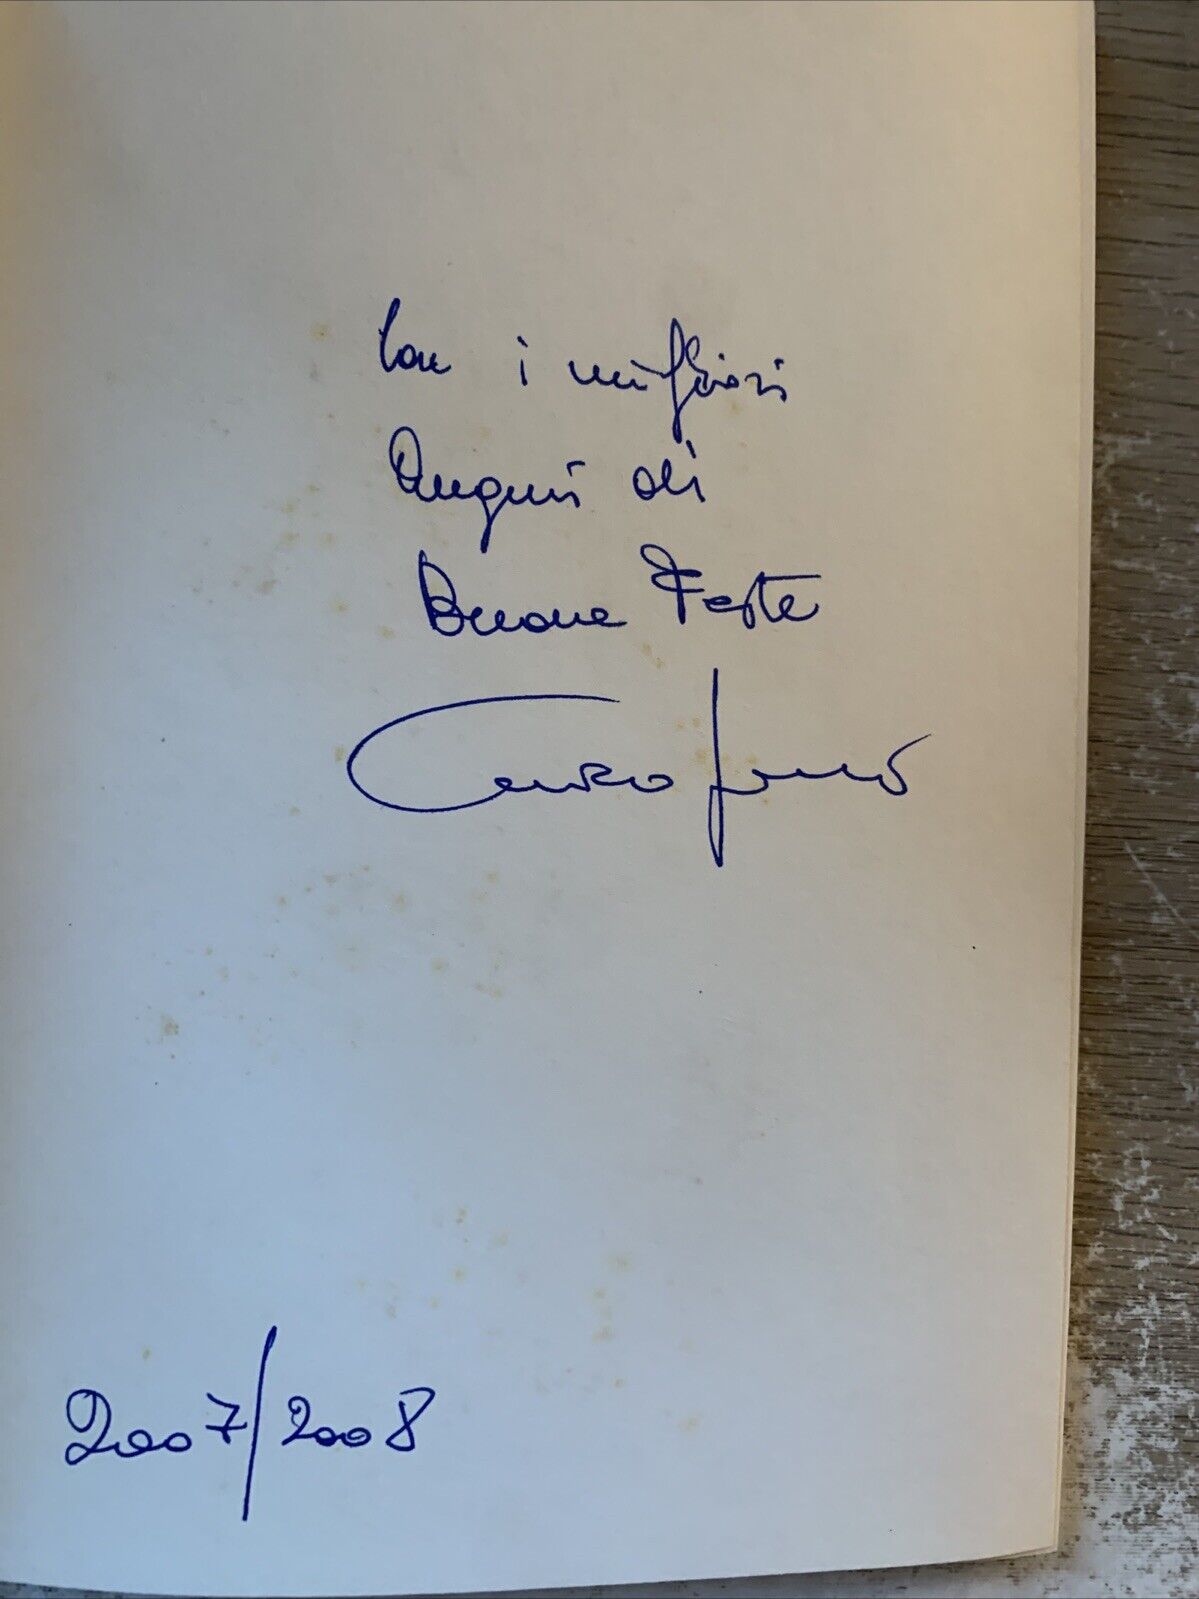 Con i migliori
Auguri di
Buone Feste
2007/2008